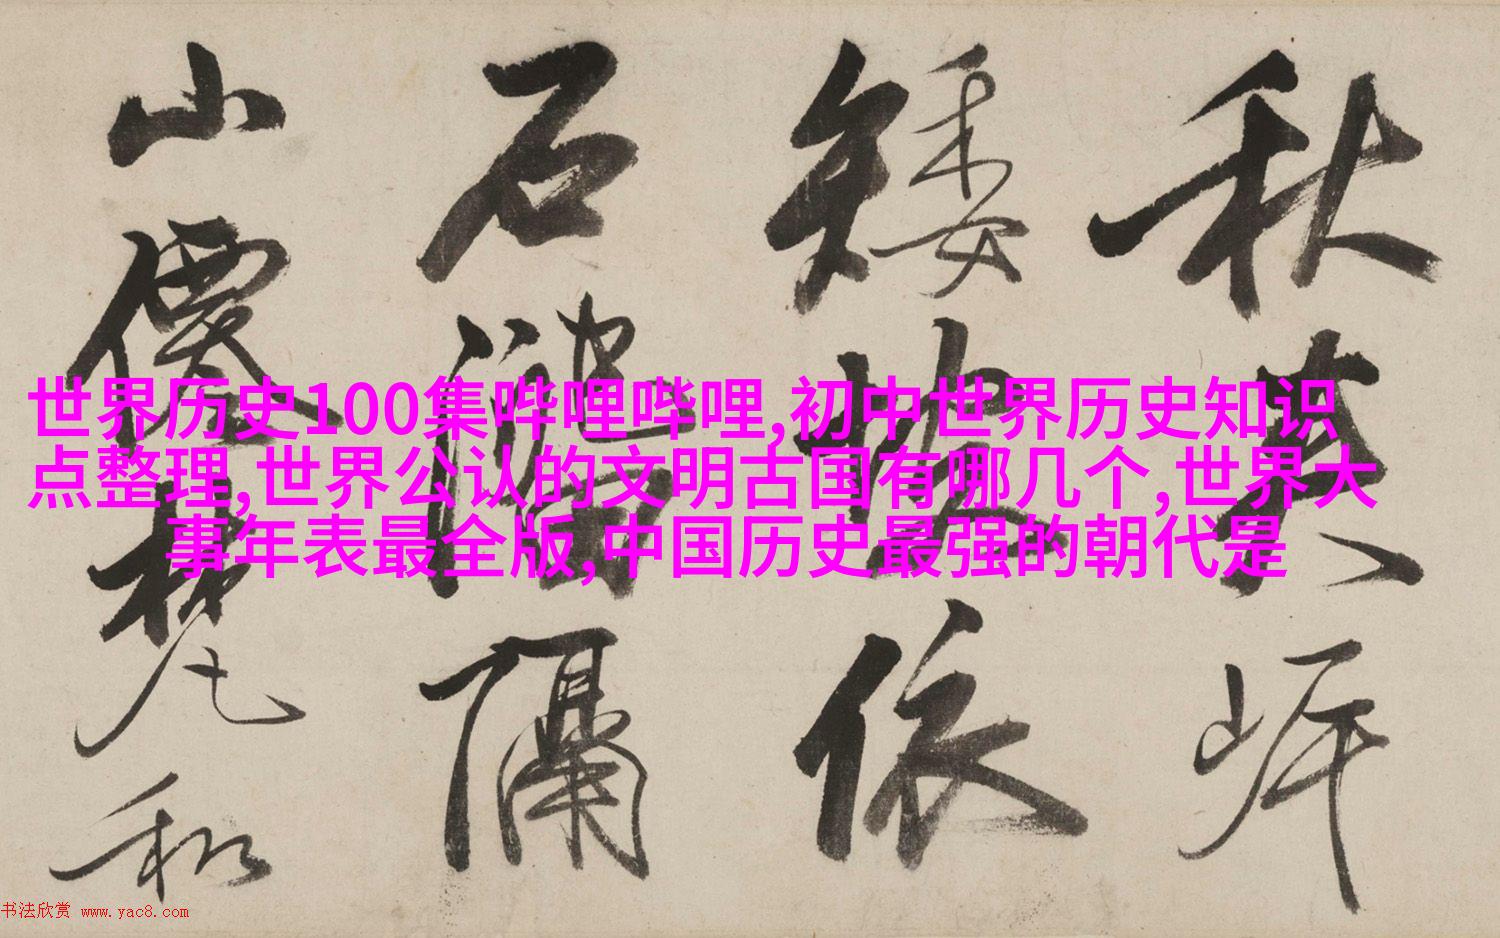 世界历史100集哔哩哔哩,初中世界历史知识
点整理,世界公认的文明古国有哪几个,世界大
事年表最全版,中国历史最强的朝代是
秋
矮依
石隔
山和
书法欣赏 www.yac8.com